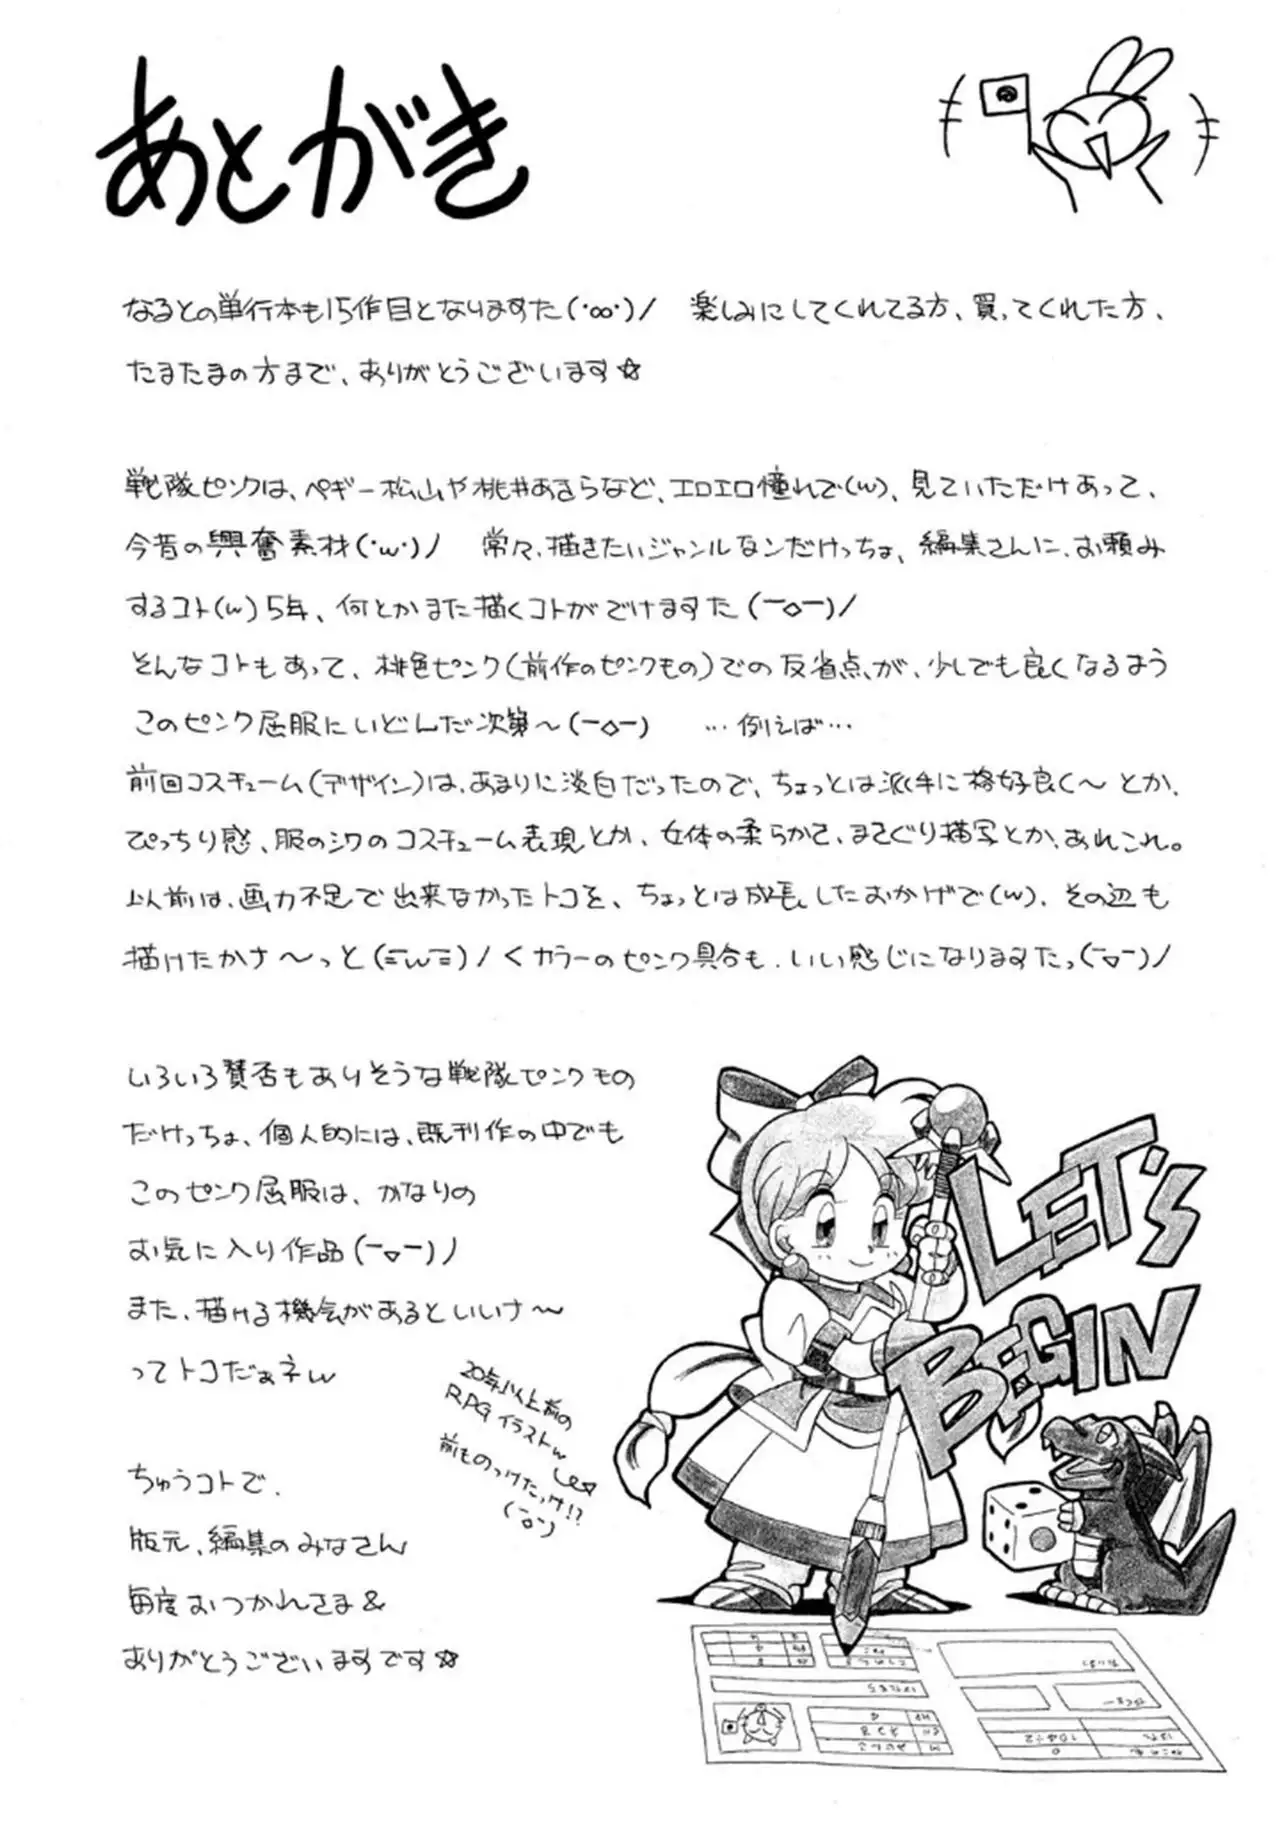 あとがき
なるとの単行本も15作目となりますた(・∞・)/　楽しみにしてくれてる方、買ってくれた方、
たまたまの方まで、ありがとうございます☆
戦隊ピンクは、ペギー松山や桃井あきらなど、エロエロ憧れで(w)、見ていただけあって、
今昔の興奮素材(・w・)ノ　常々、描きたいジャンルなンだけっちょ、編集さんに、お頼み
するコト(w)5年、何とかまた描くコトがでけますた(￣◇￣)/
そんなコトもあって、桃色ピンク(前作のピンクもの)での反省点が、少しでも良くなるよう
このピンク屈服にいどんだ次第〜(￣◇￣)　…例えば…
前回コスチューム(デザイン)は、あまりに淡白だったので、ちょっとは派手に格好良く〜とか、
ぴっちり感、服のシワのコスチューム表現とか、女体の柔らかさ、まさぐり描写とか、あれこれ。
以前は、画力不足で出来なかったトコを、ちょっとは成長したおかげで(w)、その辺も
描けたかナ〜っと(≡w≡)/くカラーのピンク具合も、いい感じになりますたっ(￣▽￣)/
いろいろ賛否もありそうな戦隊ピンクもの
だけっちょ、個人的には、既刊作の中でも
このピンク屈服は、かなりの
お気に入り作品(￣▽￣)ノ
また、描ける機会があるといいナ〜
ってトコだぁネw
20年以上前の
RPGイラストw
前ものっけたっけ!?
(￣o￣)
ちゅうコトで、
版元、編集のみなさん
毎度おつかれさま&
ありがとうございますです☆
LET'S
BEGIN